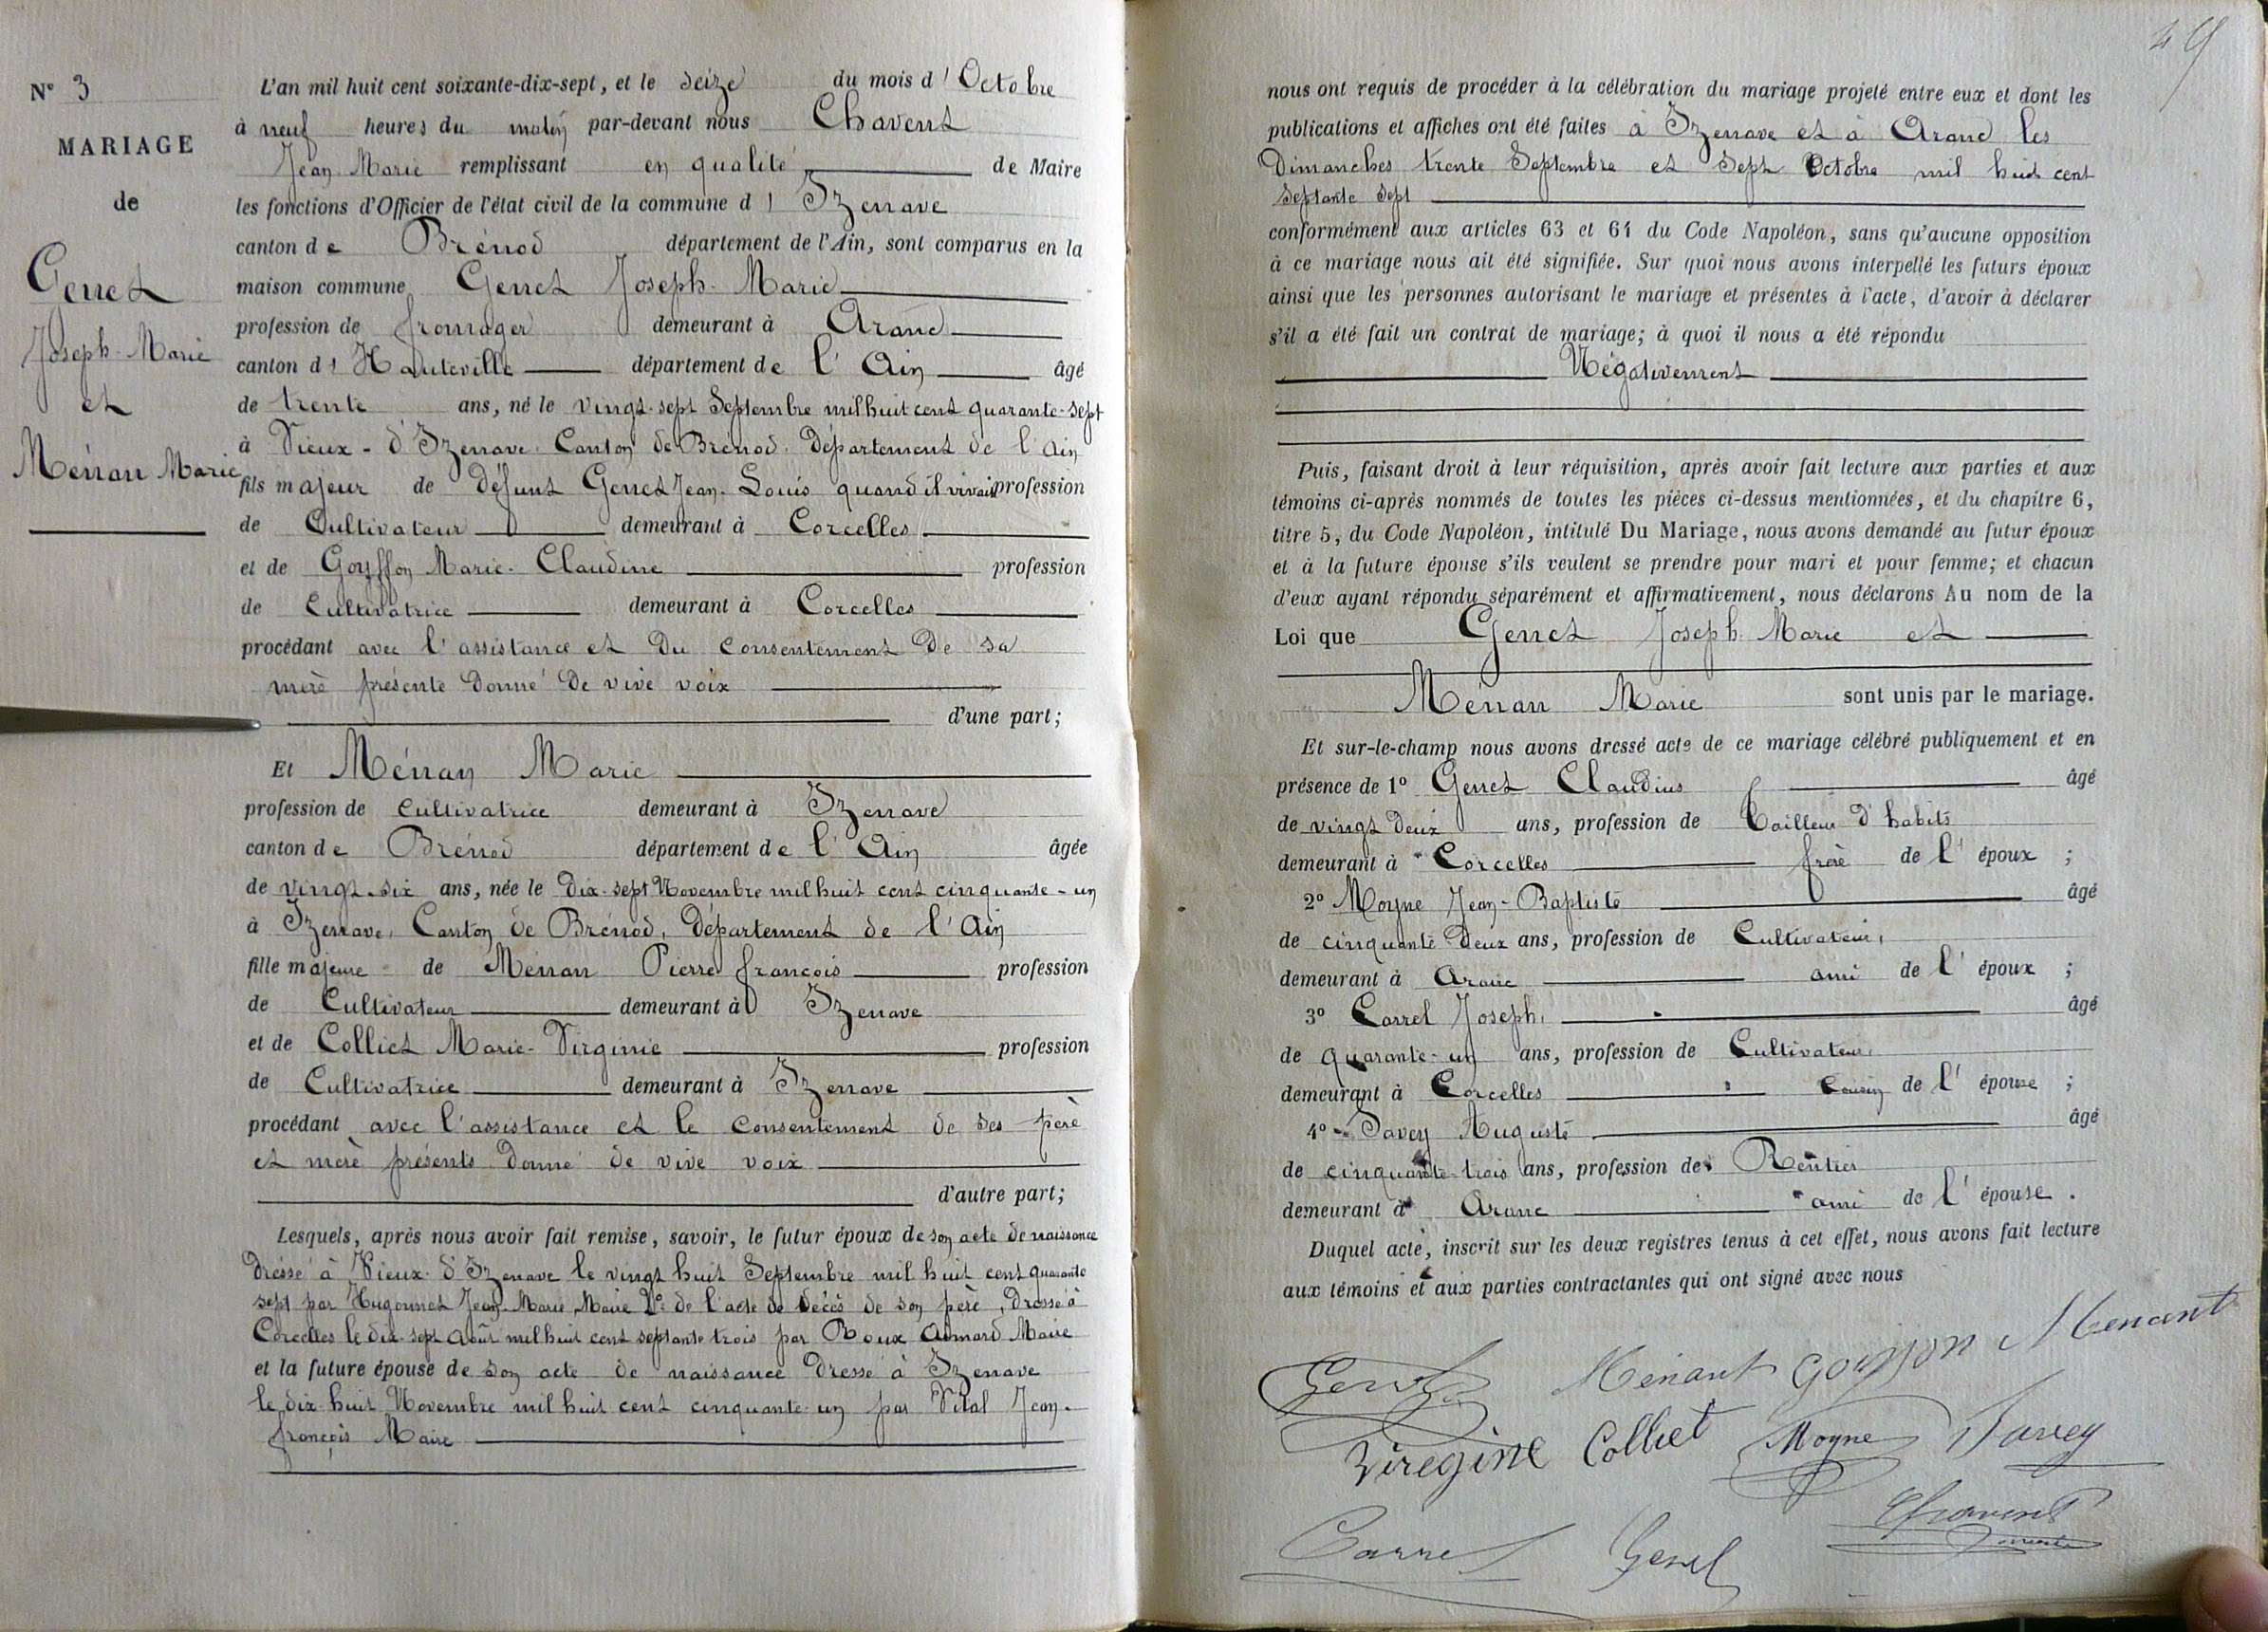 N° 3
MARIAGE
de
Genet
Joseph-Marie
et
Ménan Marie
L'an mil huit cent soixante-dix-sept, et le seize du mois d'Octobre
à neuf heures du matin par-devant nous Chavent
Jean Marie remplissant en qualité de Maire
les fonctions d'Officier de l'état civil de la commune d' Izenave
canton de Brénod département de l'Ain, sont comparus en la
maison commune Genet Joseph-Marie
profession de fromager demeurant à Aranc
canton d' Hauteville département de l'Ain âgé
de trente ans, né le vingt-sept Septembre mil huit cent quarante-sept
à Vieux-d'Izenave Canton de Brénod Département de l'Ain
fils majeur de défunt Genet Jean-Louis quand il vivait profession
de Cultivateur demeurant à Corcelles
et de Goyffon Marie-Claudine profession
de Cultivatrice demeurant à Corcelles
procédant avec l'assistance et du consentement de sa
mère présente donné de vive voix
d'une part;
Et Ménan Marie
profession de cultivatrice demeurant à Izenave
canton de Brénod département de l'Ain âgée
de vingt-six ans, née le dix-sept Novembre mil huit cent cinquante-un
à Izenave, Canton de Brénod, Département de l'Ain
fille majeure de Ménan Pierre françois profession
de Cultivateur demeurant à Izenave
et de Colliet Marie-Virginie profession
de Cultivatrice demeurant à Izenave
procédant avec l'assistance et le consentement de ses père
et mère présents donné de vive voix
d'autre part;
Lesquels, après nous avoir fait remise, savoir, le futur époux de son acte de naissance
dressé à Vieux-d'Izenave le vingt huit Septembre mil huit cent quarante
sept par Hugonnet Jean-Marie Maire 2° de l'acte de décès de son père, dressé à
Corcelles le dix-sept Août mil huit cent septante trois par Roux Aimard Maire
et la future épouse de son acte de naissance dressé à Izenave
le dix-huit Novembre mil huit cent cinquante-un par Vital Jean-
françois Maire
49
nous ont requis de procéder à la célébration du mariage projeté entre eux et dont les
publications et affiches ont été faites à Izenave et à Aranc les
Dimanches trente Septembre et Sept Octobre mil huit cent
septante sept
conformément aux articles 63 et 64 du Code Napoléon, sans qu'aucune opposition
à ce mariage nous ait été signifiée. Sur quoi nous avons interpellé les futurs époux
ainsi que les personnes autorisant le mariage et présentes à l'acte, d'avoir à déclarer
s'il a été fait un contrat de mariage; à quoi il nous a été répondu
Négativement
Puis, faisant droit à leur réquisition, après avoir fait lecture aux parties et aux
témoins ci-après nommés de toutes les pièces ci-dessus mentionnées, et du chapitre 6,
titre 5, du Code Napoléon, intitulé Du Mariage, nous avons demandé au futur époux
et à la future épouse s'ils veulent se prendre pour mari et pour femme; et chacun
d'eux ayant répondu séparément et affirmativement, nous déclarons Au nom de la
Loi que Genet Joseph Marie et
Ménan Marie sont unis par le mariage.
Et sur-le-champ nous avons dressé acte de ce mariage célébré publiquement et en
présence de 1° Genet Claudius âgé
de vingt deux ans, profession de Tailleur d'habits
demeurant à Corcelles frère de l'époux ;
2° Moyne Jean-Baptiste âgé
de cinquante deux ans, profession de Cultivateur,
demeurant à Aranc ami de l'époux ;
3° Carrel Joseph, âgé
de quarante-un ans, profession de Cultivateur
demeurant à Corcelles Cousin de l'épouse ;
4° Savey Auguste âgé
de cinquante-trois ans, profession de Rentier
demeurant à Aranc ami de l'épouse.
Duquel acte, inscrit sur les deux registres tenus à cet effet, nous avons fait lecture
aux témoins et aux parties contractantes qui ont signé avec nous
Genet Menant Goiffon Menant
Viregine Colliet Moyne Savey
Carrel Genet Chavent